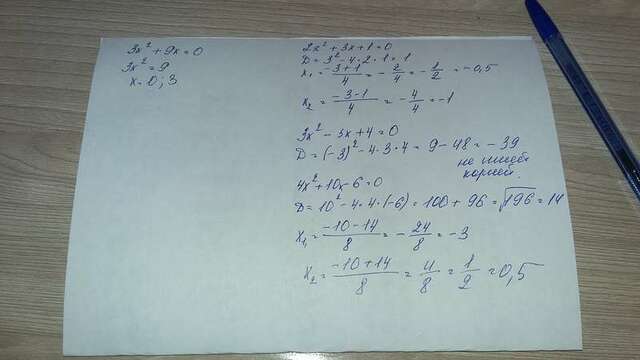 3x² + 9x = 0
3x² = 9
x = 0; 3
2x² + 3x + 1 = 0
D = 3² - 4·2·1 = 1
x₁ = -3+1/4 = -2/4 = -1/2 = -0,5
x₂ = -3-1/4 = -4/4 = -1
3x² - 3x + 4 = 0
D = (-3)² - 4·3·4 = 9 - 48 = -39
не имеет
корней.
4x² + 10x - 6 = 0
D = 10² - 4·4·(-6) = 100 + 96 = √196 = 14
x₁ = -10-14/8 = -24/8 = -3
x₂ = -10+14/8 = 4/8 = 1/2 = 0,5